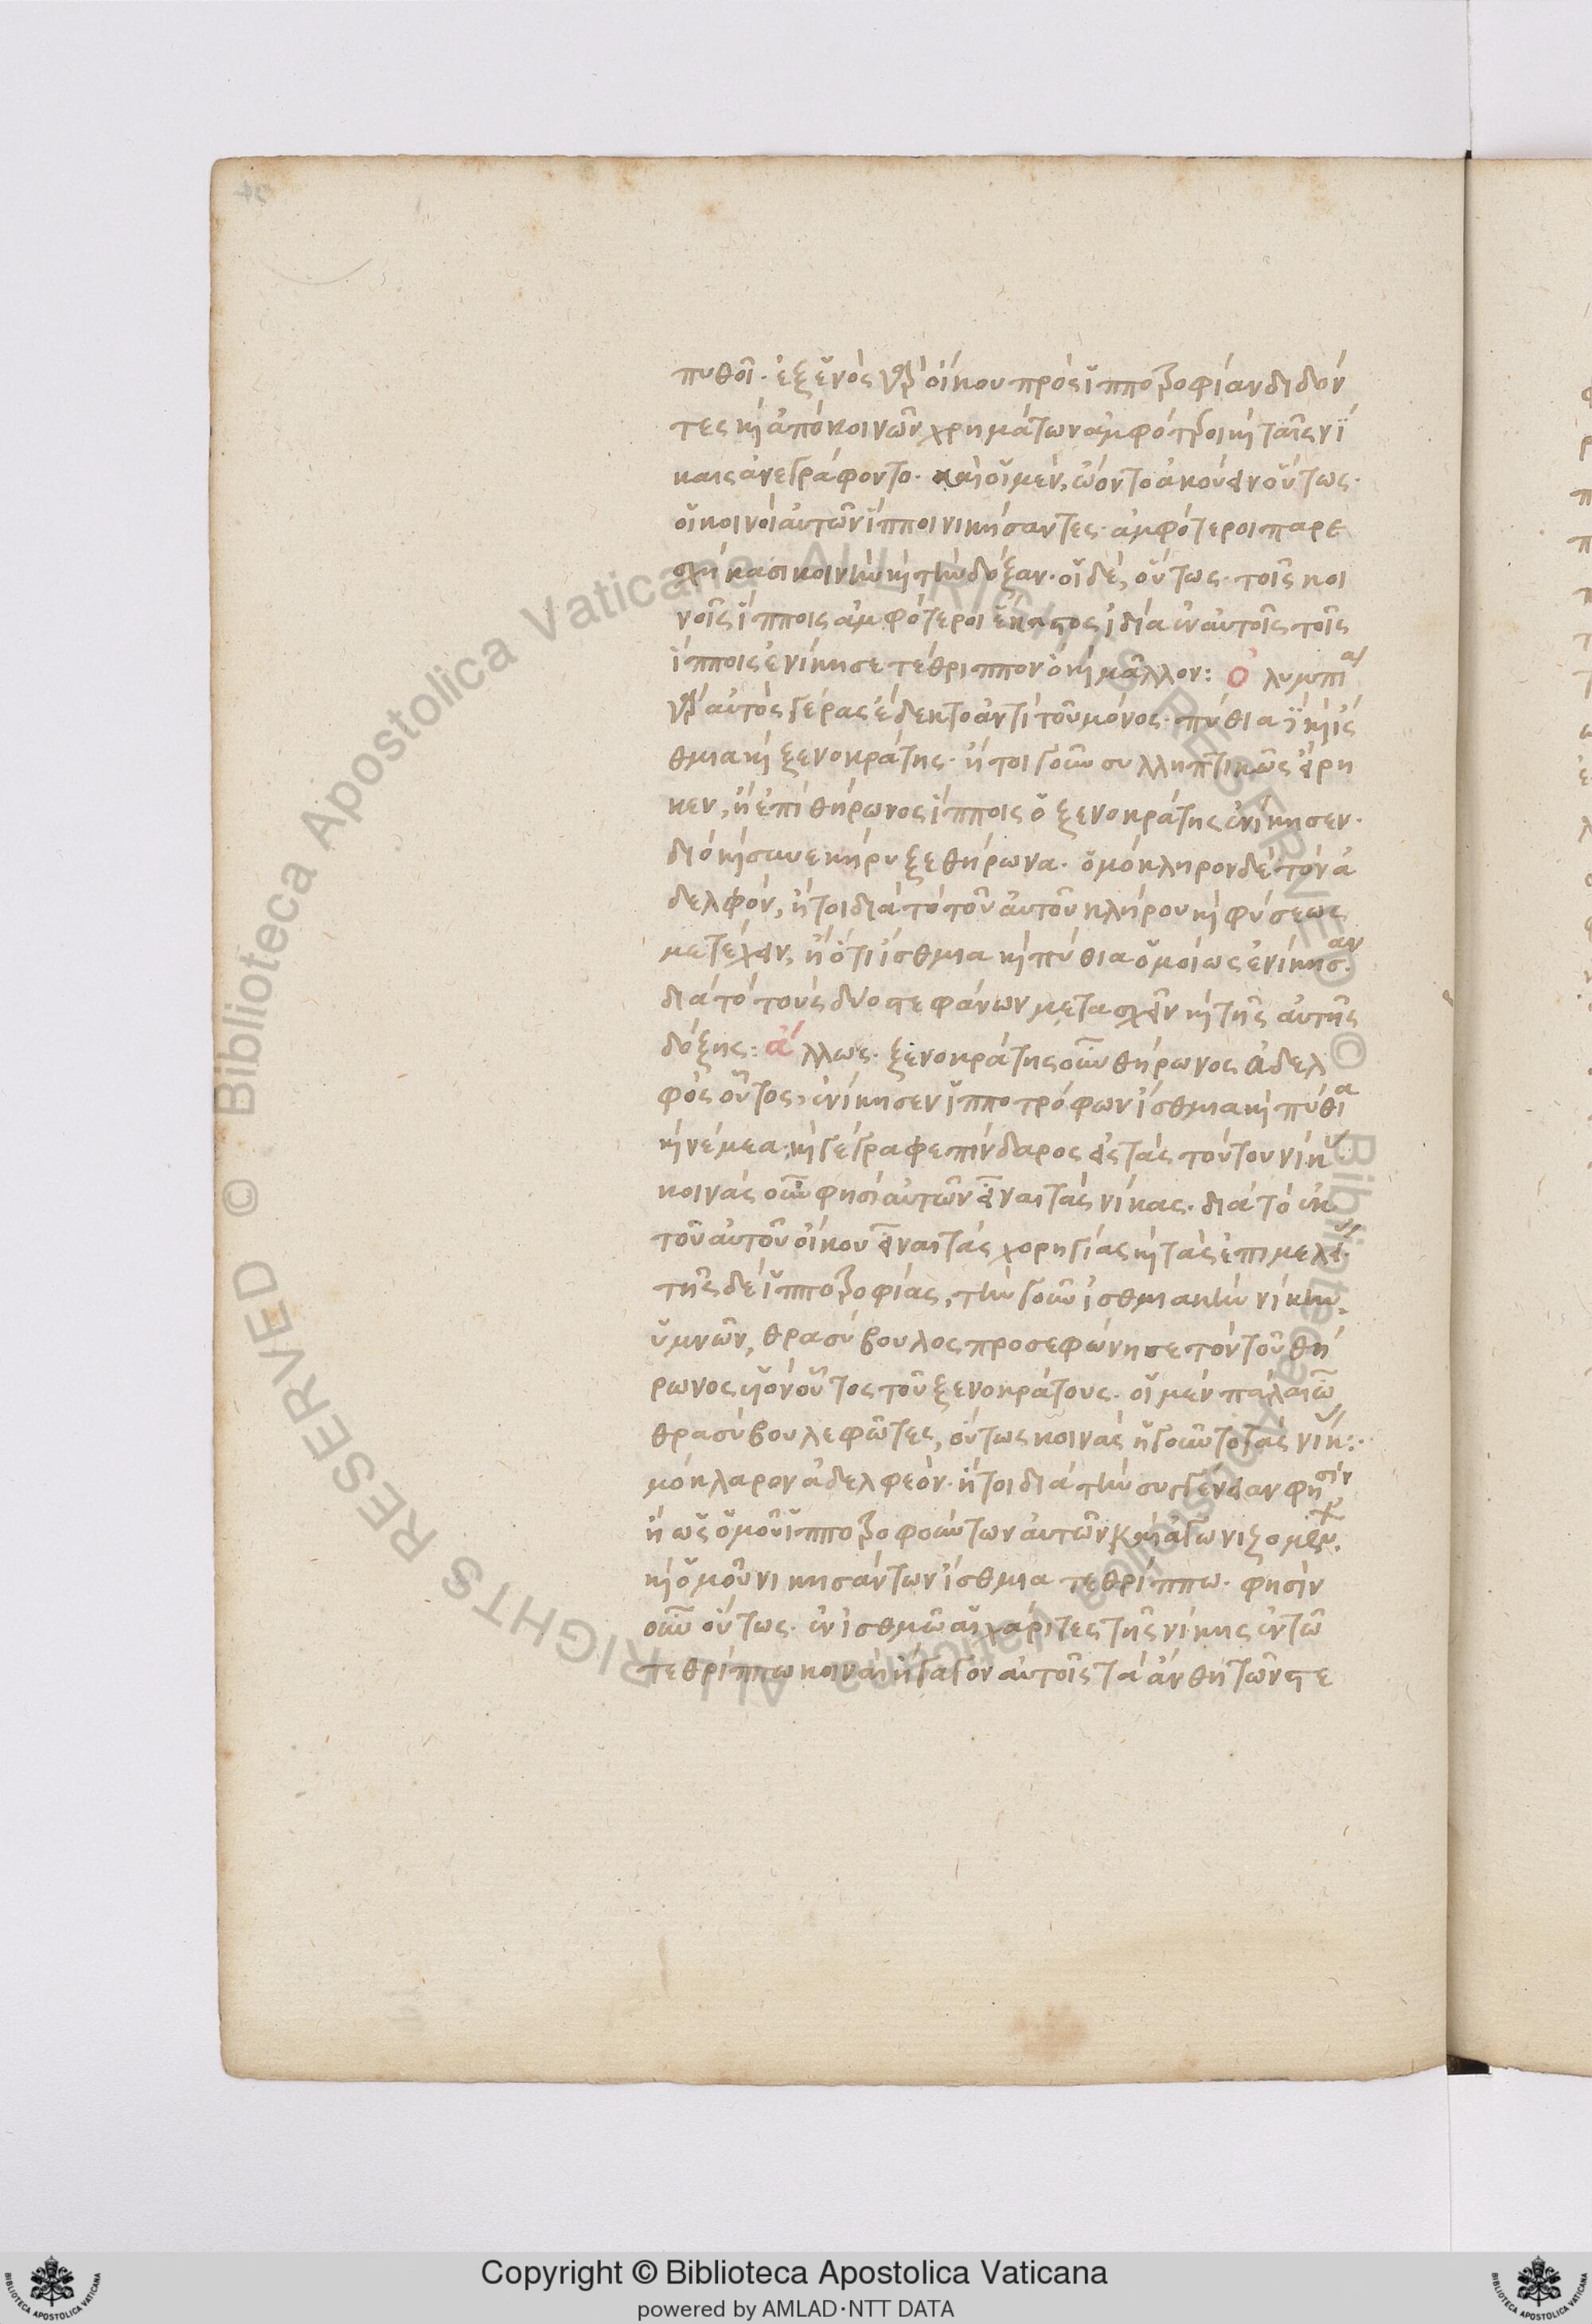 πυθοῖ. ἐξ ἑνὸς γὰρ οἴκου πρὸς ἱπποτροφίαν διδόν
τες καὶ ἀπὸ κοινῶν χρημάτων ἀμφότεροι καὶ ταῖς νί
καις ἀνεγράφοντο. καὶ οἱ μὲν, ὤοντο ἀκούειν οὕτως.
οἱ κοινοὶ αὐτῶν ἵπποι νικήσαντες. ἀμφότεροι παρε
σχήκασι κοινὴν καὶ τὴν δόξαν. οἱ δὲ, οὕτως. τοῖς κοι
νοῖς ἵπποις ἀμφότεροι ἕκαστος ἰδία ἐν αὐτοῖς τοῖς
ἵπποις ἐνίκησε τέθριππον ὃ καὶ μᾶλλον: ὀλυμπία
γὰρ αὐτὸς γέρας ἔδεκτο ἀντὶ τοῦ μόνος. πύθια ἢ καὶ ἴσ
θμια καὶ ξενοκράτης. ἤτοι γοῦν συλληπτικῶς εἴρη
κεν, ἢ ἐπὶ θήρωνος ἵπποις ὁ ξενοκράτης ἐνίκησεν.
διὸ καὶ συνεκήρυξε θήρωνα. ὁμόκληρον δὲ τὸν ἀ
δελφόν, ἤτοι διὰ τὸ τοῦ αὐτοῦ κλήρου καὶ φύσεως
μετέχειν, ἢ ὅτι ἴσθμια καὶ πύθια ὁμοίως ἐνίκησαν.
διὰ τὸ τοὺς δύο στεφάνων μετασχεῖν καὶ τῆς αὐτῆς
δόξης: ἄλλως. ξενοκράτης οὖν θήρωνος ἀδελ
φὸς οὗτος, ἐνίκησεν ἱπποτρόφων ἴσθμια καὶ πύθια
καὶ νέμεα. καὶ γέγραφε πίνδαρος εἰς τὰς τούτου νίκας
κοινὰς οὖν φησὶ αὐτῶν εἶναι τὰς νίκας. διὰ τὸ ἐκ
τοῦ αὐτοῦ οἴκου εἶναι τὰς χορηγίας καὶ τὰς ἐπιμελείας.
τῆς δὲ ἱπποτροφίας, τὴν γοῦν ἰσθμιακὴν νίκην.
ὑμνῶν, θρασύβουλος προσεφώνησε τὸν τοῦ θή
ρωνος υἱὸν οὗτος τοῦ ξενοκράτους. οἱ μὲν πάλαι ὦ
θρασύβουλε φῶτες, οὕτως κοινὰς ἡγοῦντο τὰς νίκας:
μόκλαρον ἀδελφεόν. ἤτοι διὰ τὴν συγγένειαν φησὶν
ἢ ὡς ὁμοῦ ἱπποτροφούντων αὐτῶν καὶ ἀγωνιζομένων.
καὶ ὁμοῦ νικησάντων ἴσθμια τεθρίππω. φησὶν
οὖν οὕτως. ἐν ἰσθμῶ αἱ χάριτες τῆς νίκης ἐν τῶ
τεθρίππω κοιναὶ ἤγαγον αὐτοῖς τὰ ἄνθη τῶν στε
Copyright © Biblioteca Apostolica Vaticana
powered by AMLAD·NTT DATA